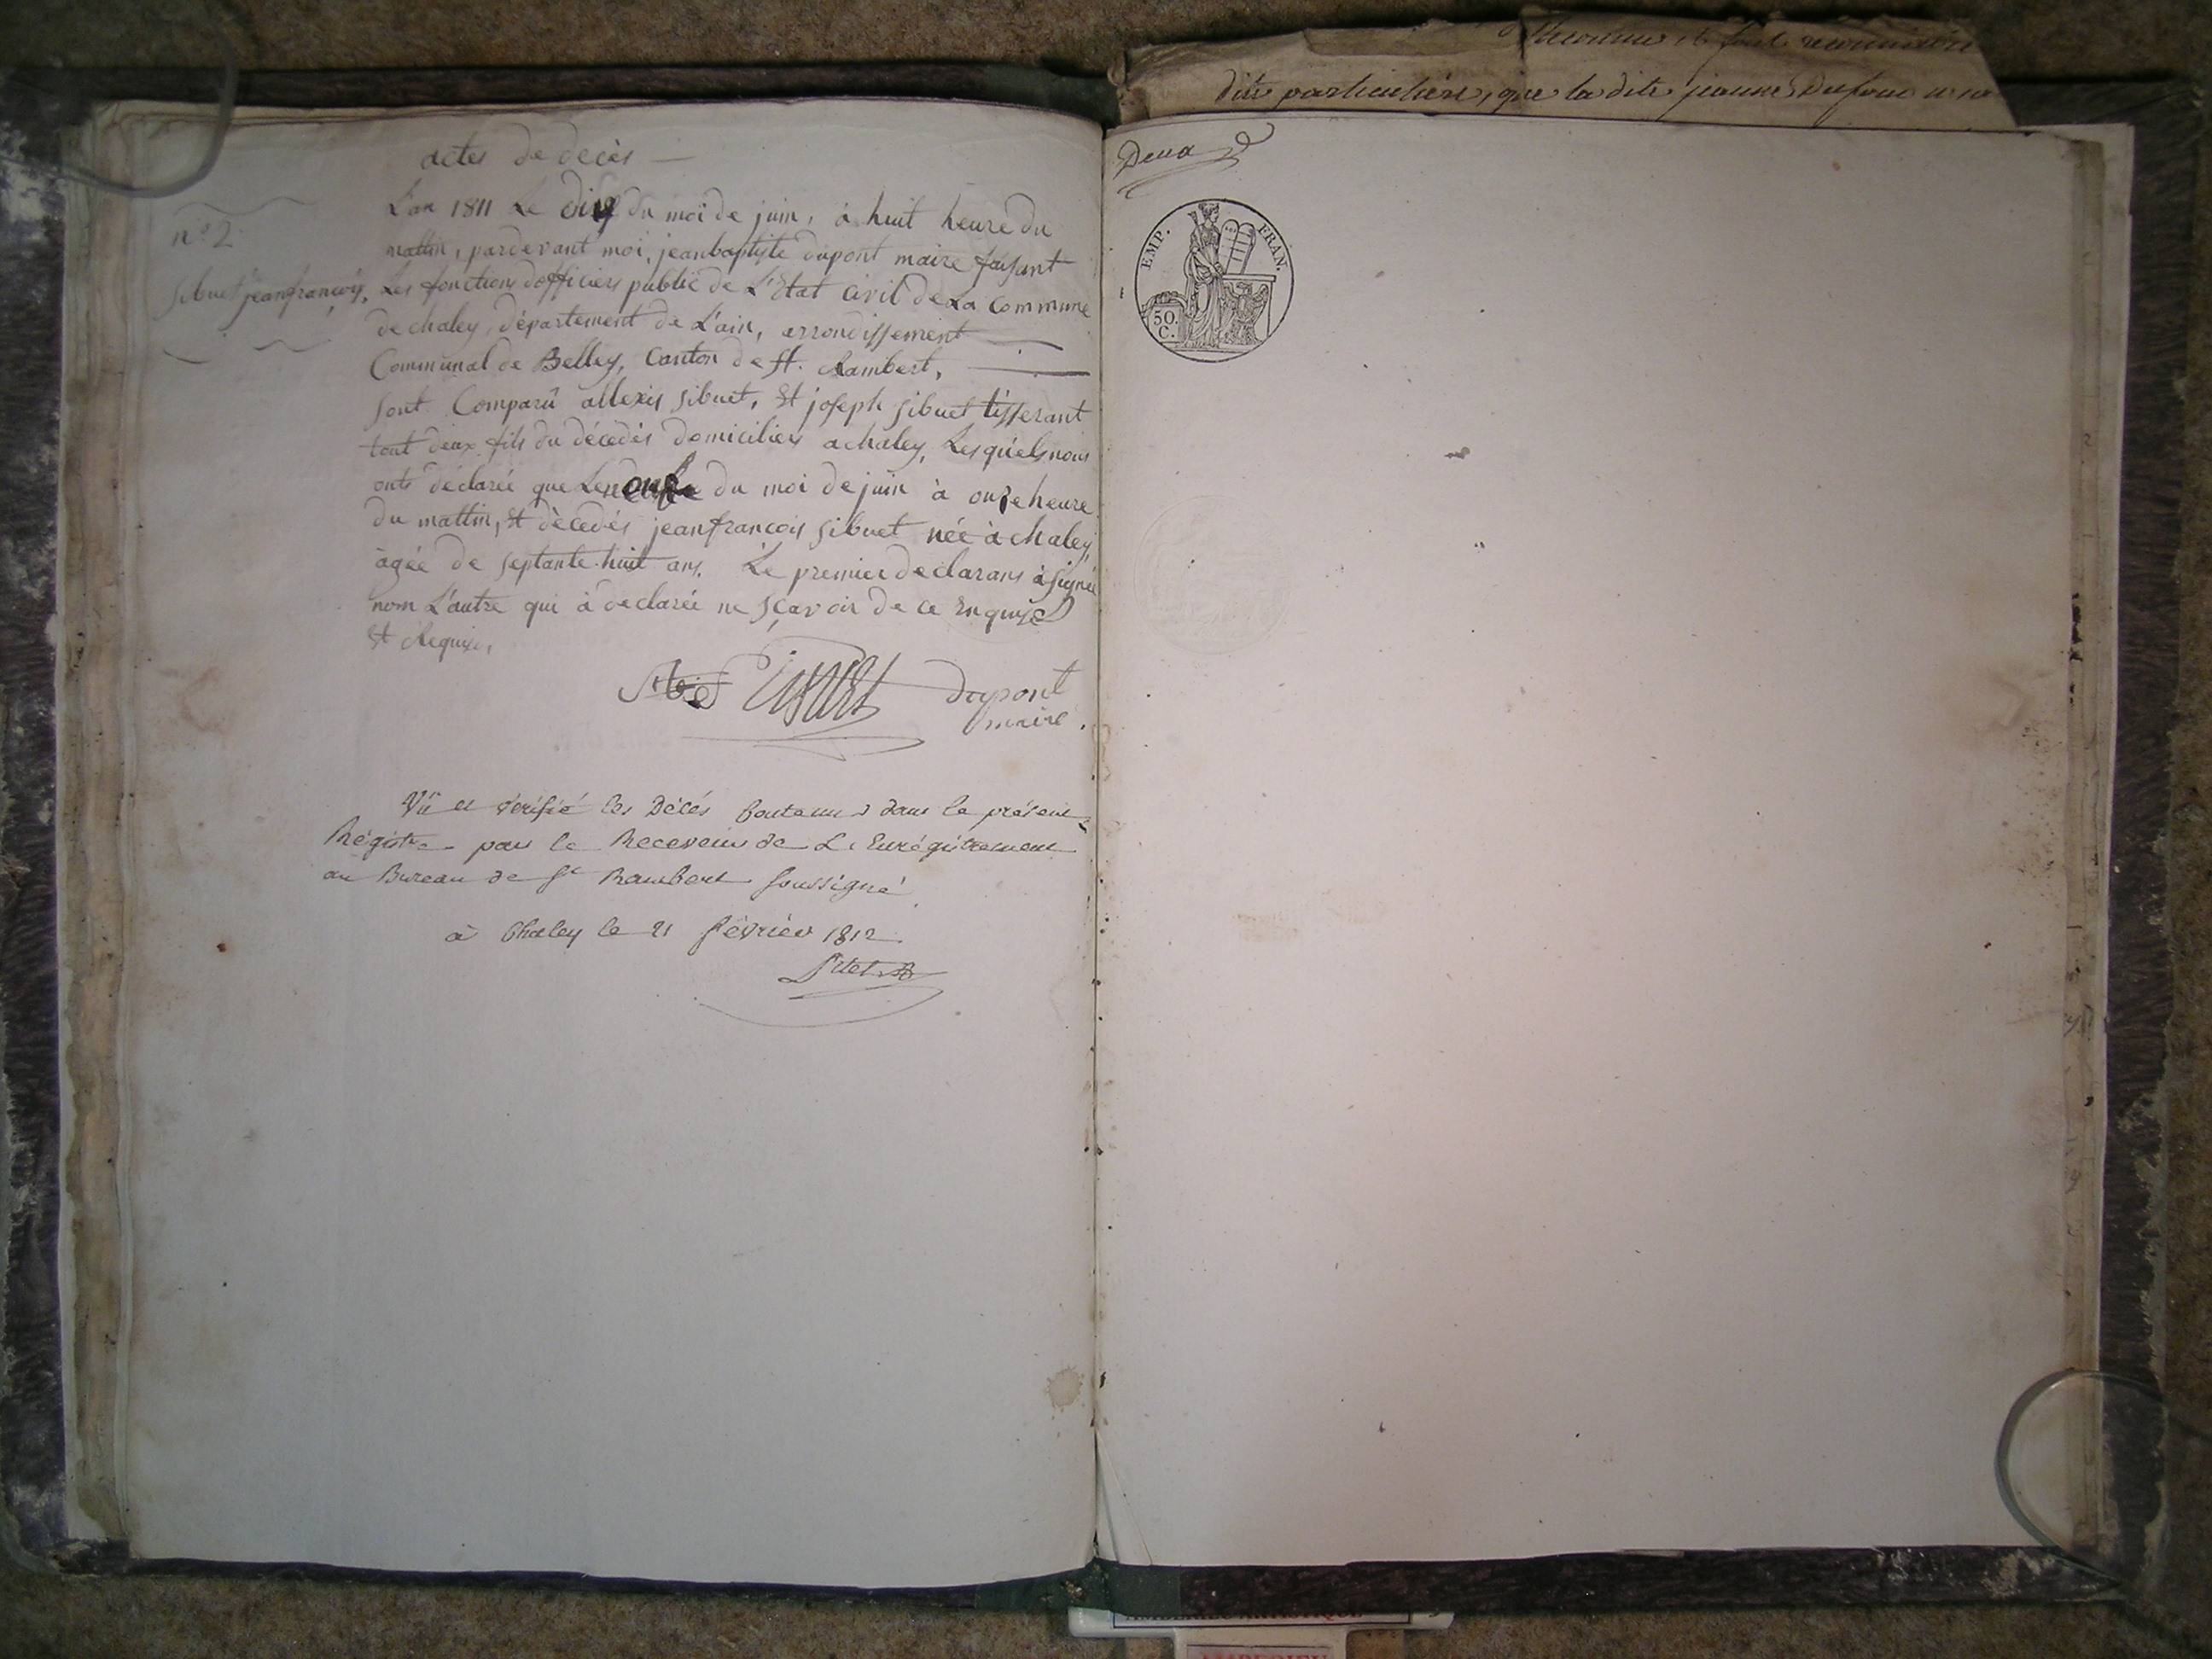 actes de decès
n° 2
sibuet jeanfrançois,
L'an 1811 Le du moi de juin, à huit heure du
mattin, pardevant moi, jeanbaptiste dupont maire faisant
Les fonctions d'officiers public de L'Etat civil de La commune
de chaley, département de L'ain, arrondissement
Communal de Belley, Canton de st. Rambert,
sont Comparû allexis sibuet, Et joseph sibuet tisserant
tout deux fils du décédés domiciliers a chaley, Lesquels nous
onts déclarée que Le du moi de juin à onze heure
du mattin, Et dècedés jeanfrançois sibuet née à chaley,
àgée de septante-huit ans. Le premier declarans à signée
nom L'autre qui à declarée ne sçavoir de ce Enquise
Et Requise,
dupont
maire.
Vü et vérifié les Décés Contenus dans le présent
Régistre par le Receveur de L'Enrégistrement
au Bureau de St Rambert soussigné
à Chaley le 21 février 1812
Deux
EMP. FRAN.
50.
C.
dite particulière, que la dite jeanne Dufour